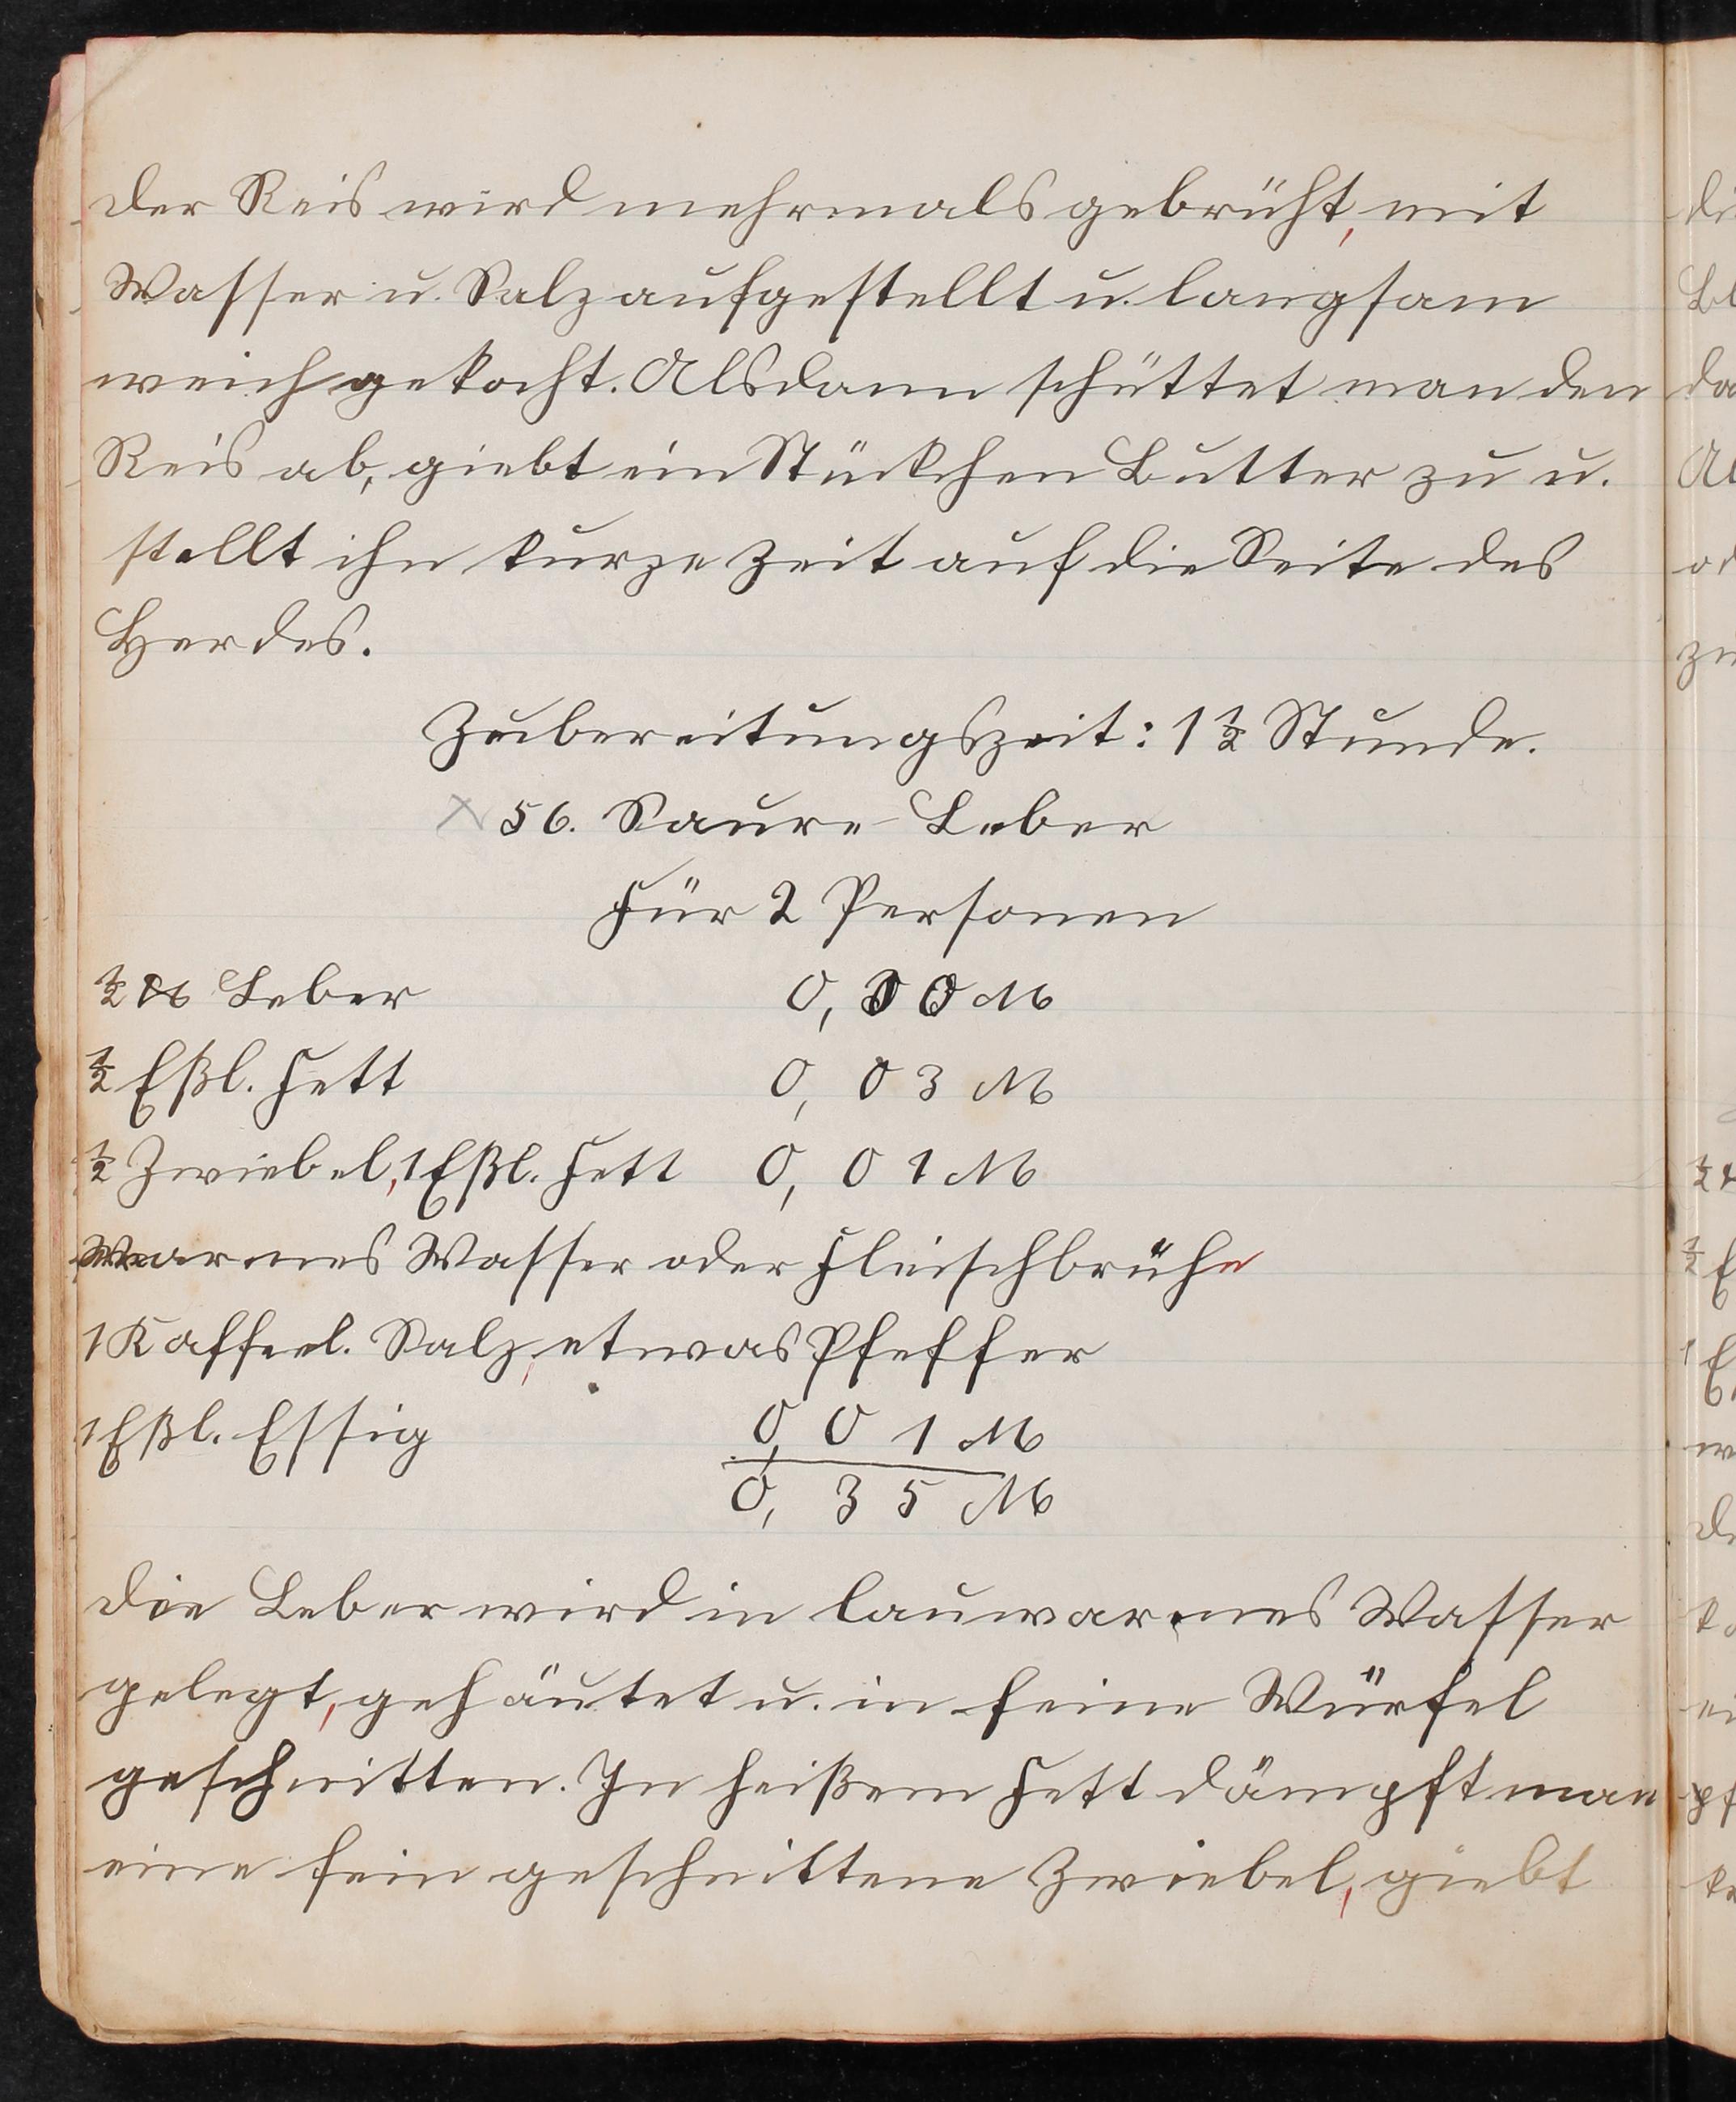 Der Reis wird mehrmals gebrüht, mit
Wasser u. Salz aufgestellt u. langsam
weich gekocht. Alsdann schüttet man den
Reis ab, giebt ein Stückchen Butter zu u.
stellt ihn kurze Zeit auf die Seite des
Herdes.
Zubereitungszeit: 1 1/2 Stunde.
x 56. Saure Leber
Für 2 Personen
1/2 ℔ Leber 0, 30 M
1/2 Eßl. Fett 0, 03 M
1/2 Zwiebel, 1 Eßl. Fett 0, 01 M
Warmes Wasser oder Fleischbrühe
1 Kaffeel. Salz, etwas Pfeffer
1 Eßl. Essig 0, 01 M
0, 35 M
Die Leber wird in lauwarmes Wasser
gelegt, gehäutet u. in feine Würfel
geschnitten. In heißem Fett dämpft man
eine fein geschnittene Zwiebel, giebt